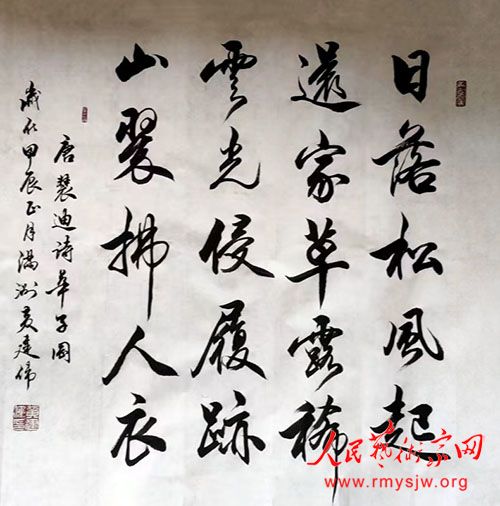 日落松風起
還家草露稀
雲光侵履跡
山翠拂人衣
唐裴迪诗華子岡
歲在甲辰正月满洲建偉
人民藝術家网
www.rmysjw.org